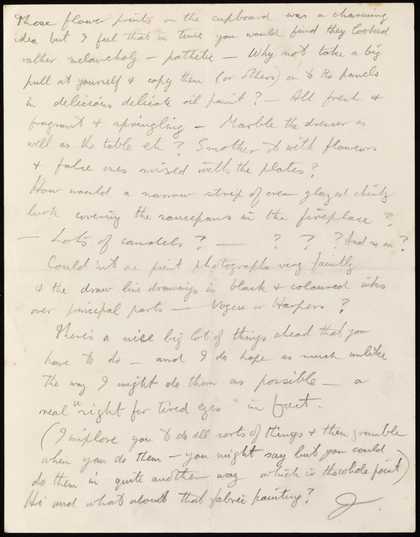 Those flower prints on the cupboard was a charming
idea but I feel that in time you would find they looked
rather melancholy — pathetic — Why not take a big
pull at yourself & copy them (or others) on to the panels
in delicious delicate oil paint? — All fresh &
fragrant & springling — Marble the dresser as
well as the table eh? Smother it with flowers
& false ones mixed with the plates?
How would a narrow strip of cream glazed chintz
look covering the saucepans in the fireplace?
— Lots of candles? — ? ? ? And so on?
Could not we print photographs very faintly
& the draw line drawings in black & coloured inks
over principal parts — Vogue or Harpers?
There's a nice big lot of things ahead that you
have to do — and I do hope as much unlike
the way I might do them as possible — a
real "right for tired eyes" in fact.
(I implore you to do all sorts of things & then grumble
when you do them — you might say but you could
do them in quite another way which is the whole point)
Hi and what about that fabric painting?
J